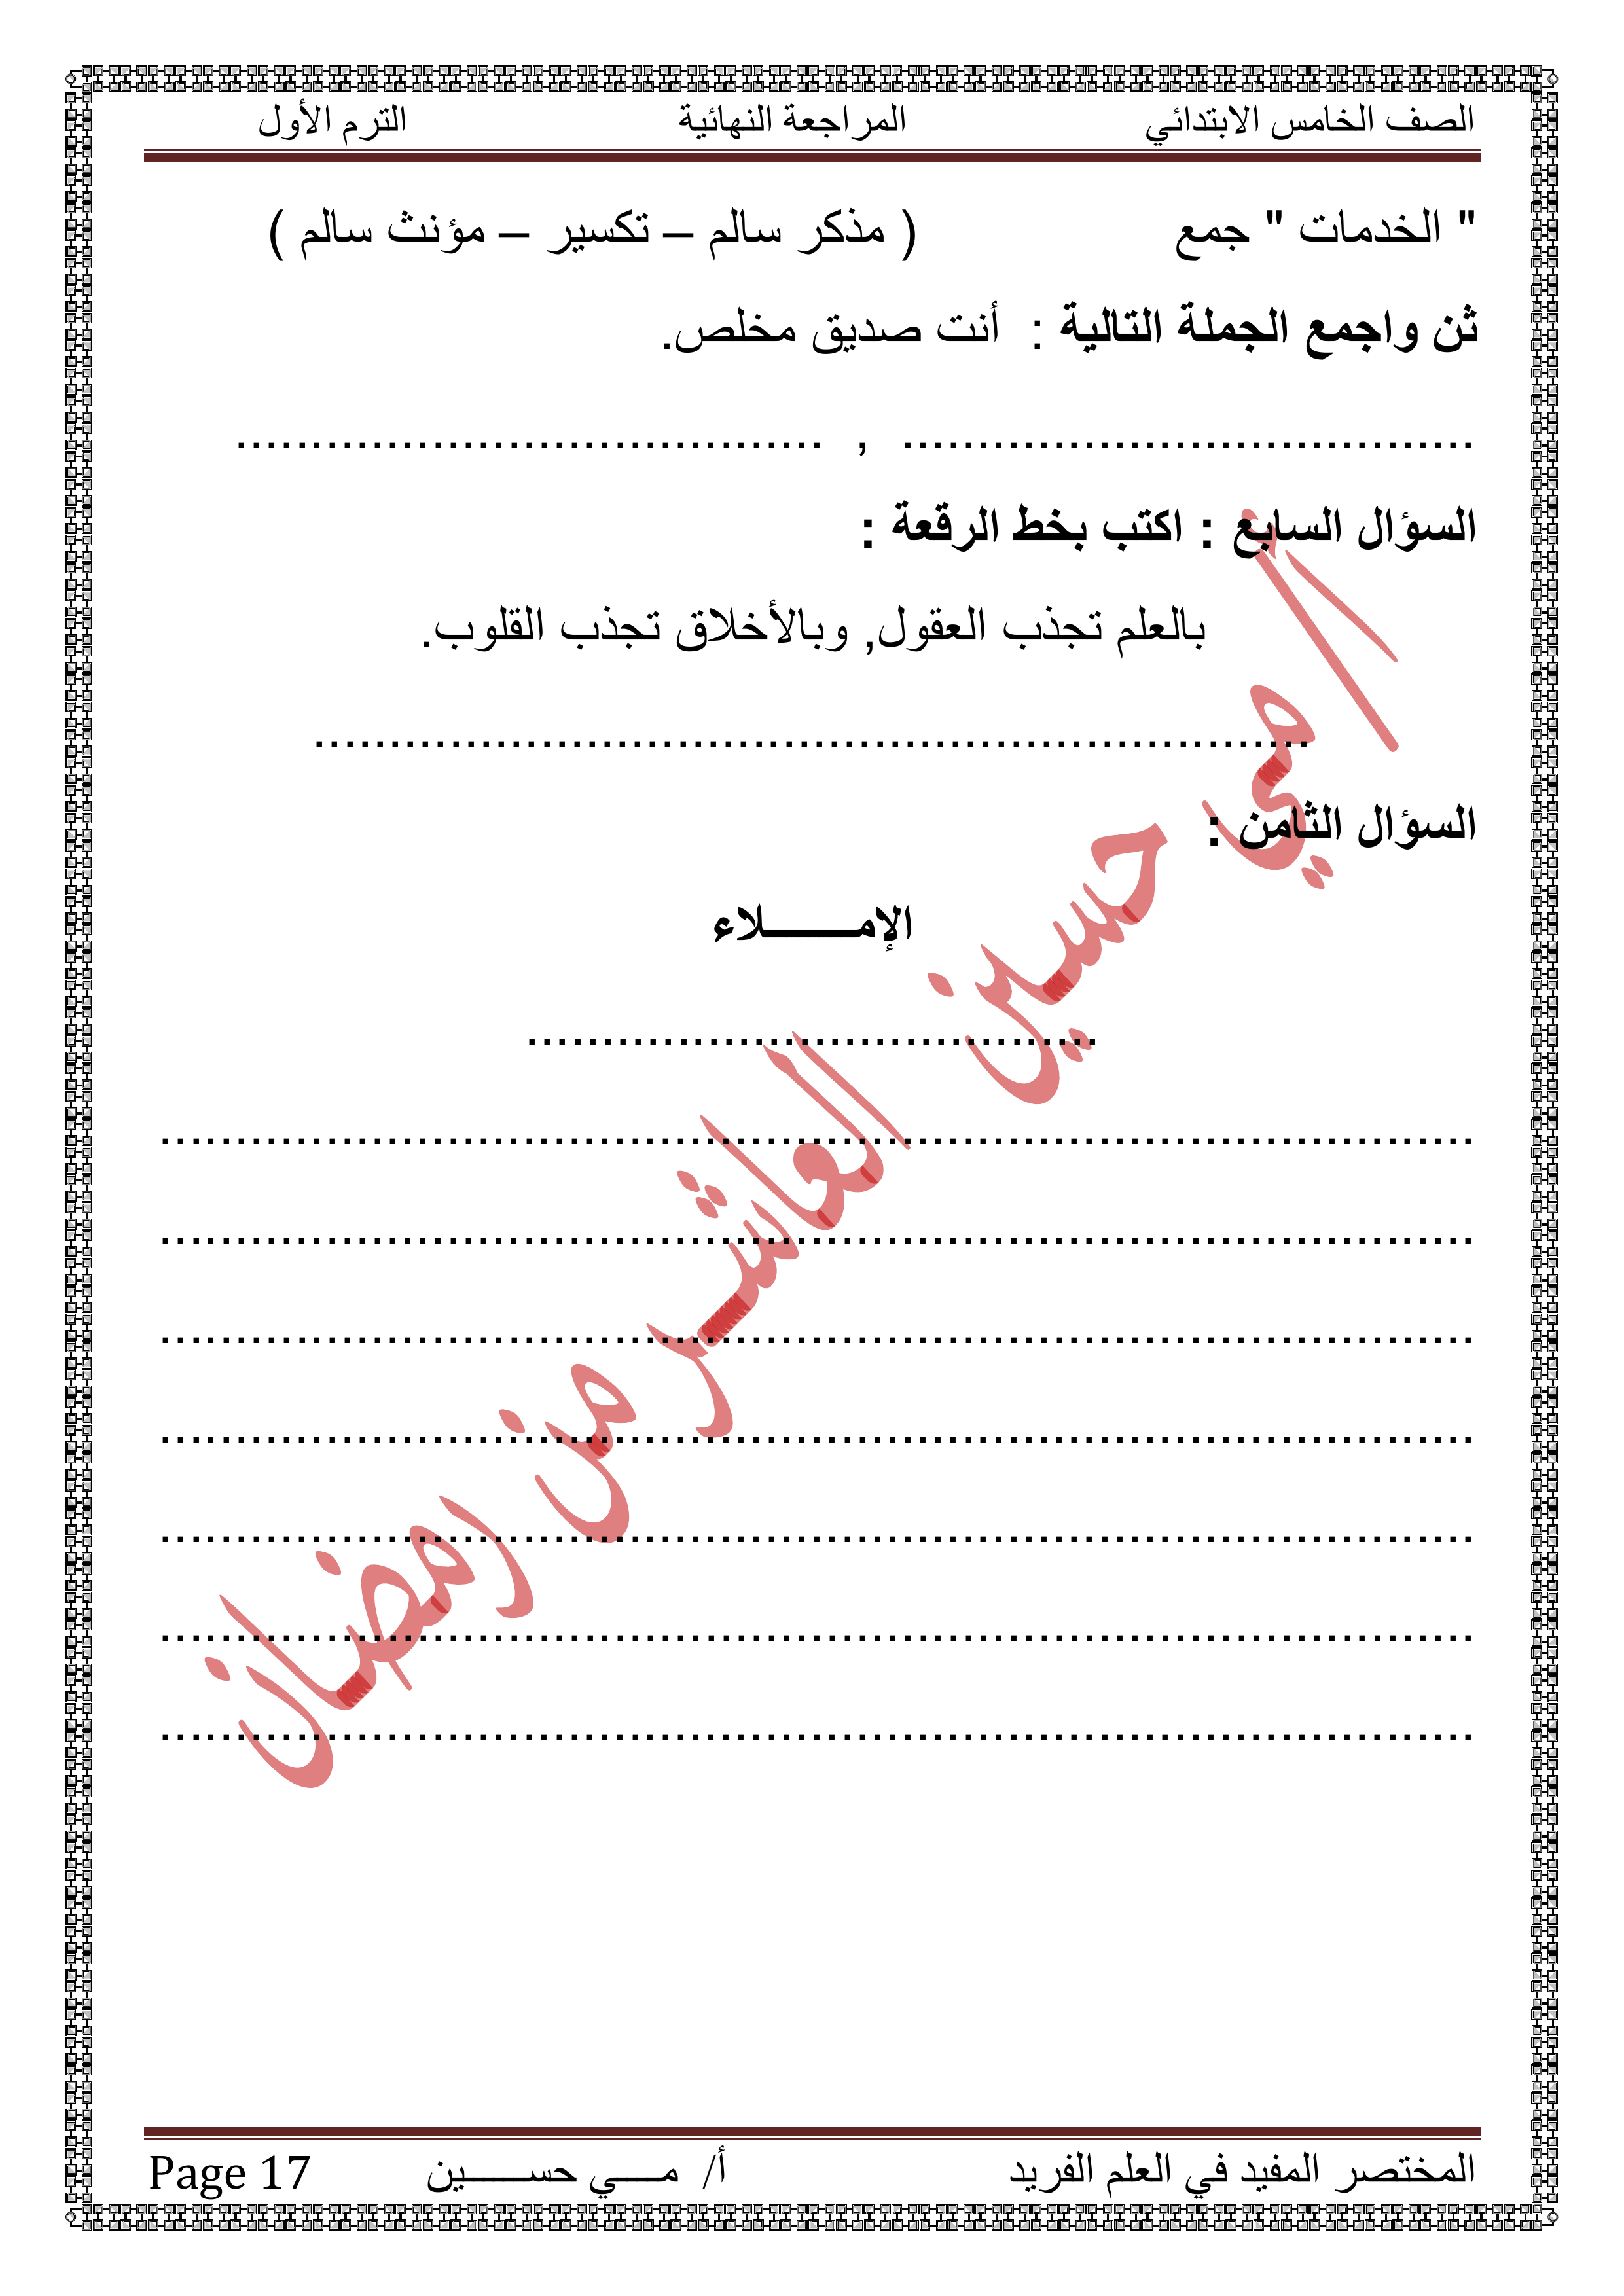 الصف الخامس الابتدائي المراجعة النهائية الترم الأول
" الخدمات " جمع ( مذكر سالم – تكسير – مؤنث سالم )
ثن واجمع الجملة التالية : أنت صديق مخلص.
...................................... , .......................................
السؤال السابع : اكتب بخط الرقعة :
بالعلم تجذب العقول, وبالأخلاق تجذب القلوب.
..................................................................
السؤال الثامن :
الإمـــــــلاء
......................................
.......................................................................................
.......................................................................................
.......................................................................................
.......................................................................................
.......................................................................................
.......................................................................................
.......................................................................................
أ/ مي حسين العاشر من رمضان
المختصر المفيد في العلم الفريد أ/ مــــي حســــــين Page 17